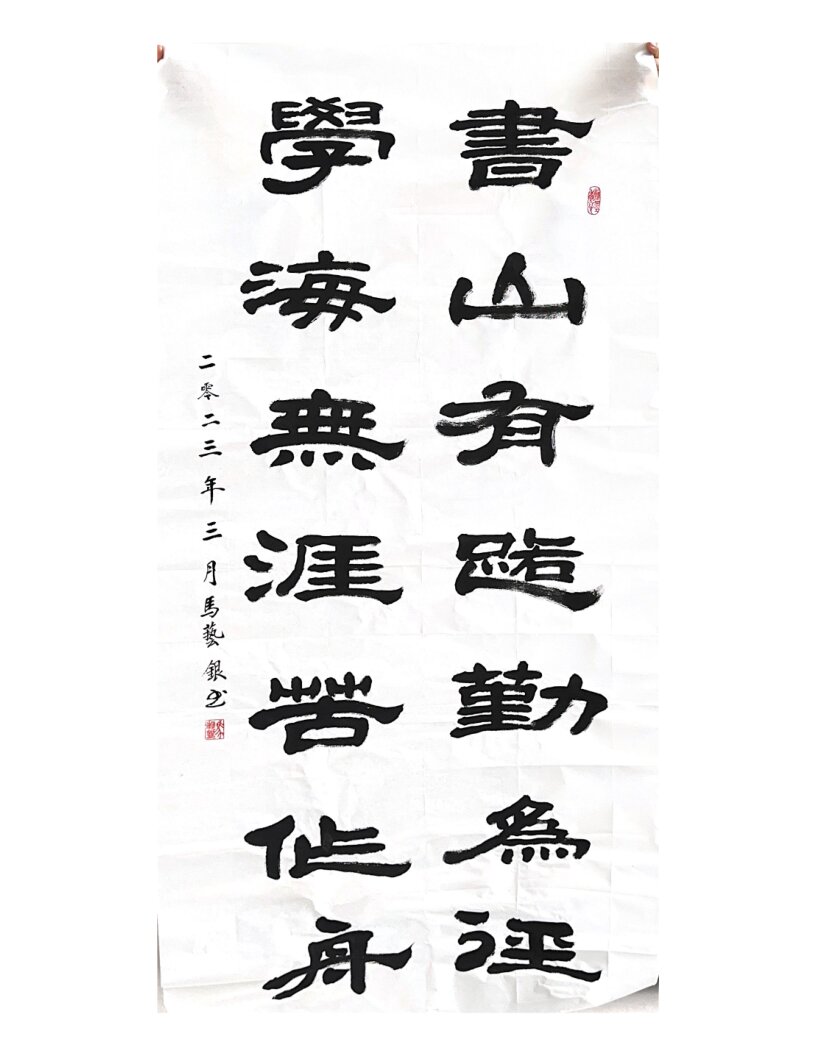 書山有路勤為徑
學海無涯苦作舟
二零二三年三月馬藝銀书